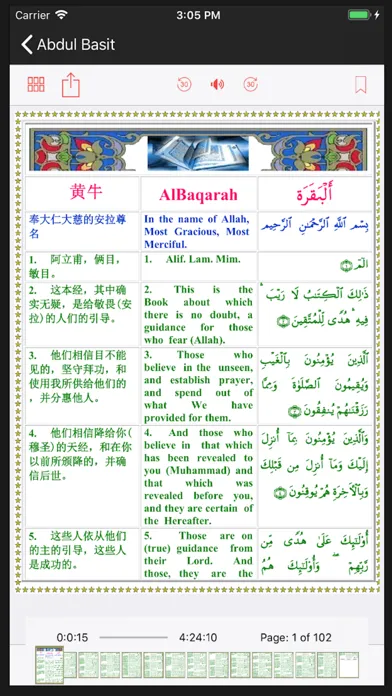 Carrier 3:05 PM
Abdul Basit
30 30
黄牛
AlBaqarah
أَلْبَقَرَة
奉大仁大慈的安拉尊
名
In the name of Allah,
Most Gracious, Most
Merciful.
بِسْمِ اللَّهِ الرَّحْمَٰنِ الرَّحِيمِ
1. 阿立甫，俩目，
敏目。
1. Alif. Lam. Mim.
الٓمٓ ﴿١﴾
2. 这本经，其中确
实无疑，是给敬畏(安
拉)的人们的引导。
2. This is the
Book about which
there is no doubt, a
guidance for those
who fear (Allah).
ذَٰلِكَ الْكِتَٰبُ لَا رَيْبَ ۛ
فِيهِ ۛ هُدًى لِّلْمُتَّقِينَ ﴿٢﴾
3. 他们相信目不能
见的，坚守拜功，和
使用我所供给他们的
，并分惠他人。
3. Those who
believe in the unseen,
and establish prayer,
and spend out of
what We have
provided for them.
الَّذِينَ يُؤْمِنُونَ بِالْغَيْبِ
وَيُقِيمُونَ الصَّلَوٰةَ وَمِمَّا
رَزَقْنَٰهُمْ يُنفِقُونَ ﴿٣﴾
4. 他们相信降给你(
穆圣)的天经，和在你
以前所颁降的，并确
信后世。
4. And those who
believe in that which
has been revealed to
you (Muhammad) and
that which was
revealed before you,
and they are certain of
the Hereafter.
وَالَّذِينَ يُؤْمِنُونَ بِمَآ أُنزِلَ
إِلَيْكَ وَمَآ أُنزِلَ مِن قَبْلِكَ
وَبِالْـَٔاخِرَةِ هُمْ يُوقِنُونَ ﴿٤﴾
5. 这些人依从他们
的主的引导，这些人
是成功的。
5. Those are on
(true) guidance from
their Lord. And
those, they are the
أُولَٰٓئِكَ عَلَىٰ هُدًى مِّن
رَّبِّهِمْ ۖ وَأُولَٰٓئِكَ هُمُ
0:0:15 4:24:10 Page: 1 of 102